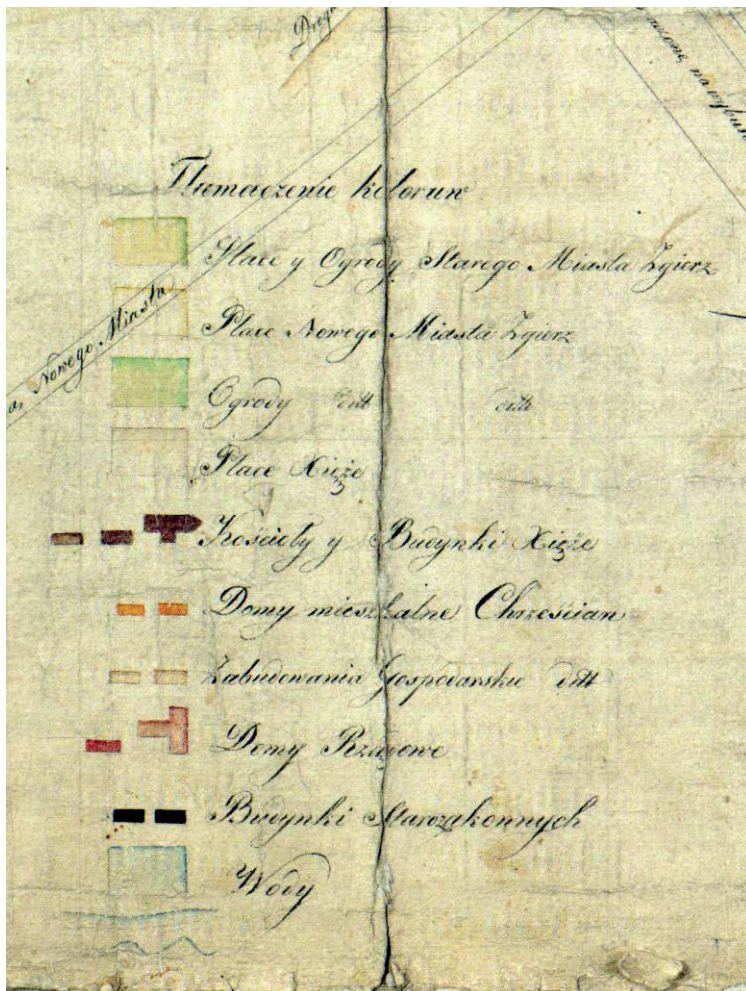 Droga
na wybud
a, Nowego Miasta
Tłumaczenie kolorow
Place y Ogrody Starego Miasta Zgierz
Place Nowego Miasta Zgierz
Ogrody ditt ditt
Place Xięże
Kościoły y Budynki Xięże
Domy mieszkalne Chrześcian
Zabudowania Gospodarskie ditt
Domy Rządowe
Budynki Starozakonnych
Wody